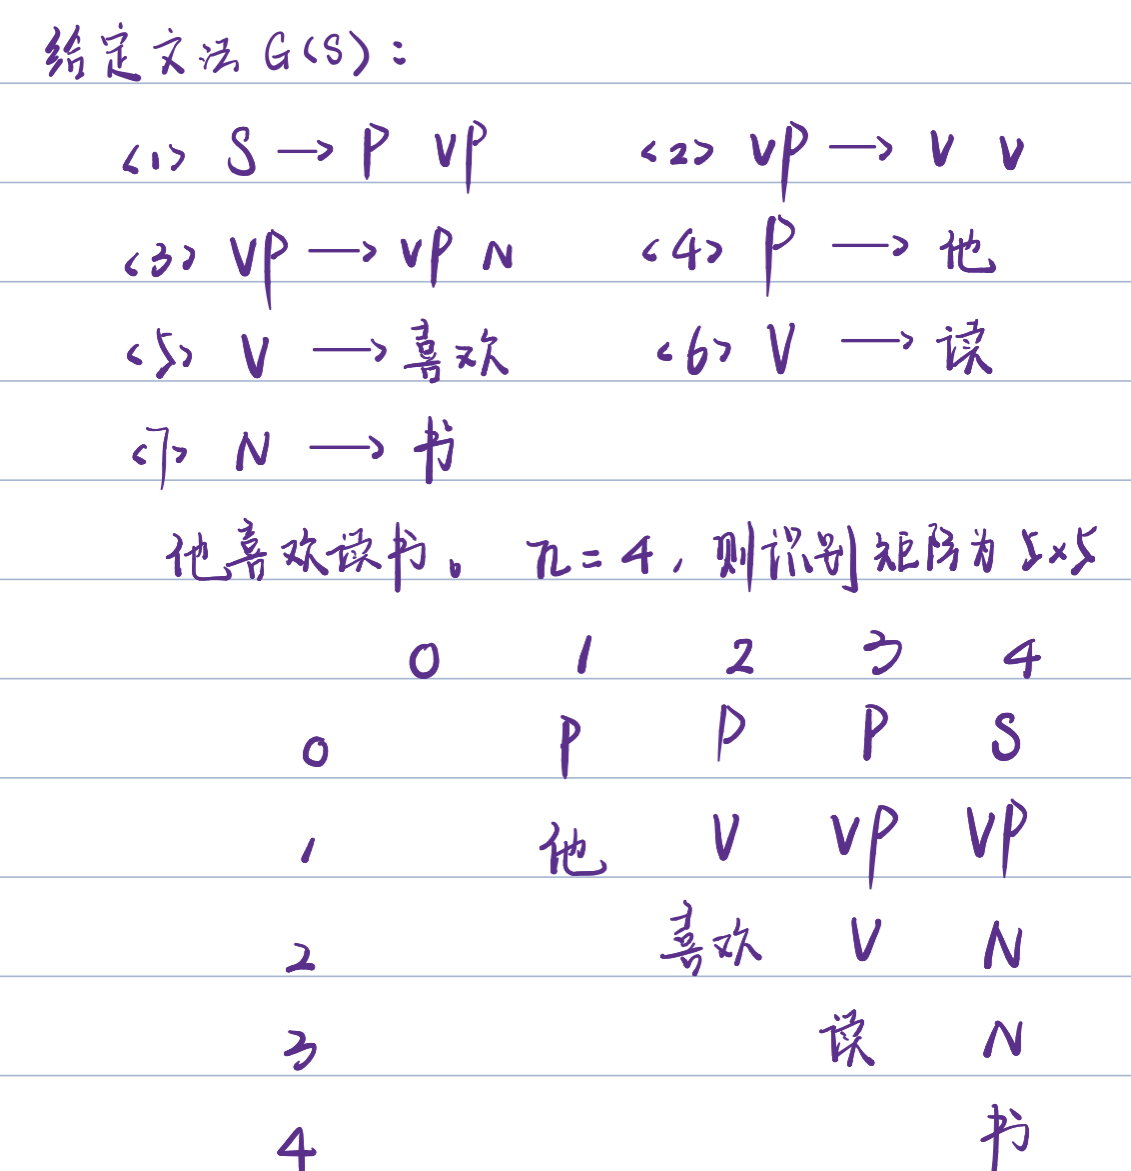 给定文法 G(S):
<1> S → P VP <2> VP → V V
<3> VP → VP N <4> P → 他
<5> V → 喜欢 <6> V → 读
<7> N → 书
他喜欢读书。 n=4, 则识别矩阵为 5×5
0 1 2 3 4
0 P P P S
1 他 V VP VP
2 喜欢 V N
3 读 N
4 书